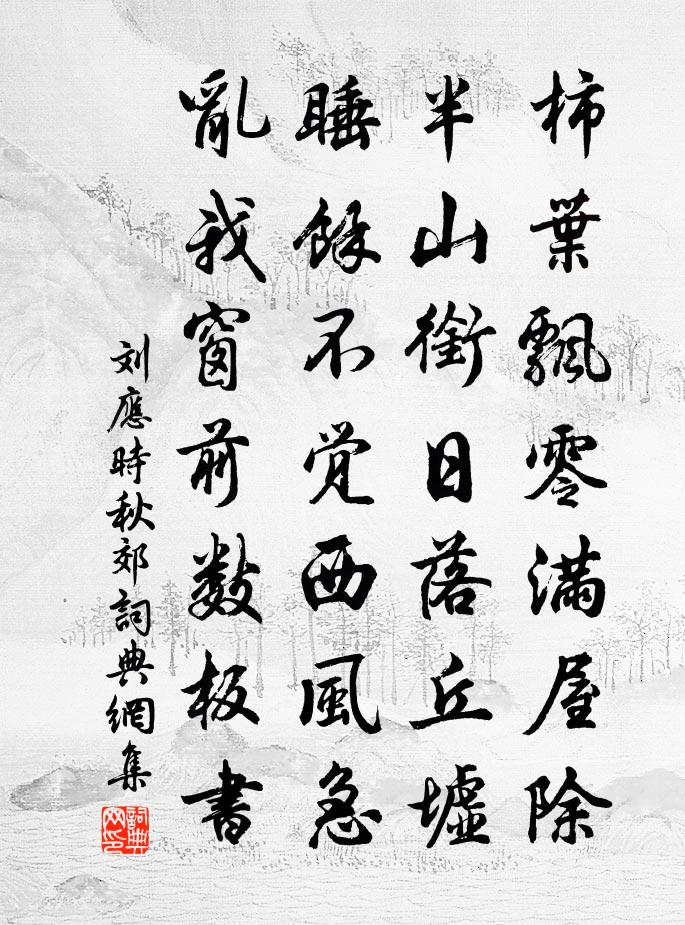 柿葉飄零滿屋除
半山銜日落丘墟
睡餘不覚西風急
亂我窗前數板書
刘應時秋郊詞典網集
詞典网印